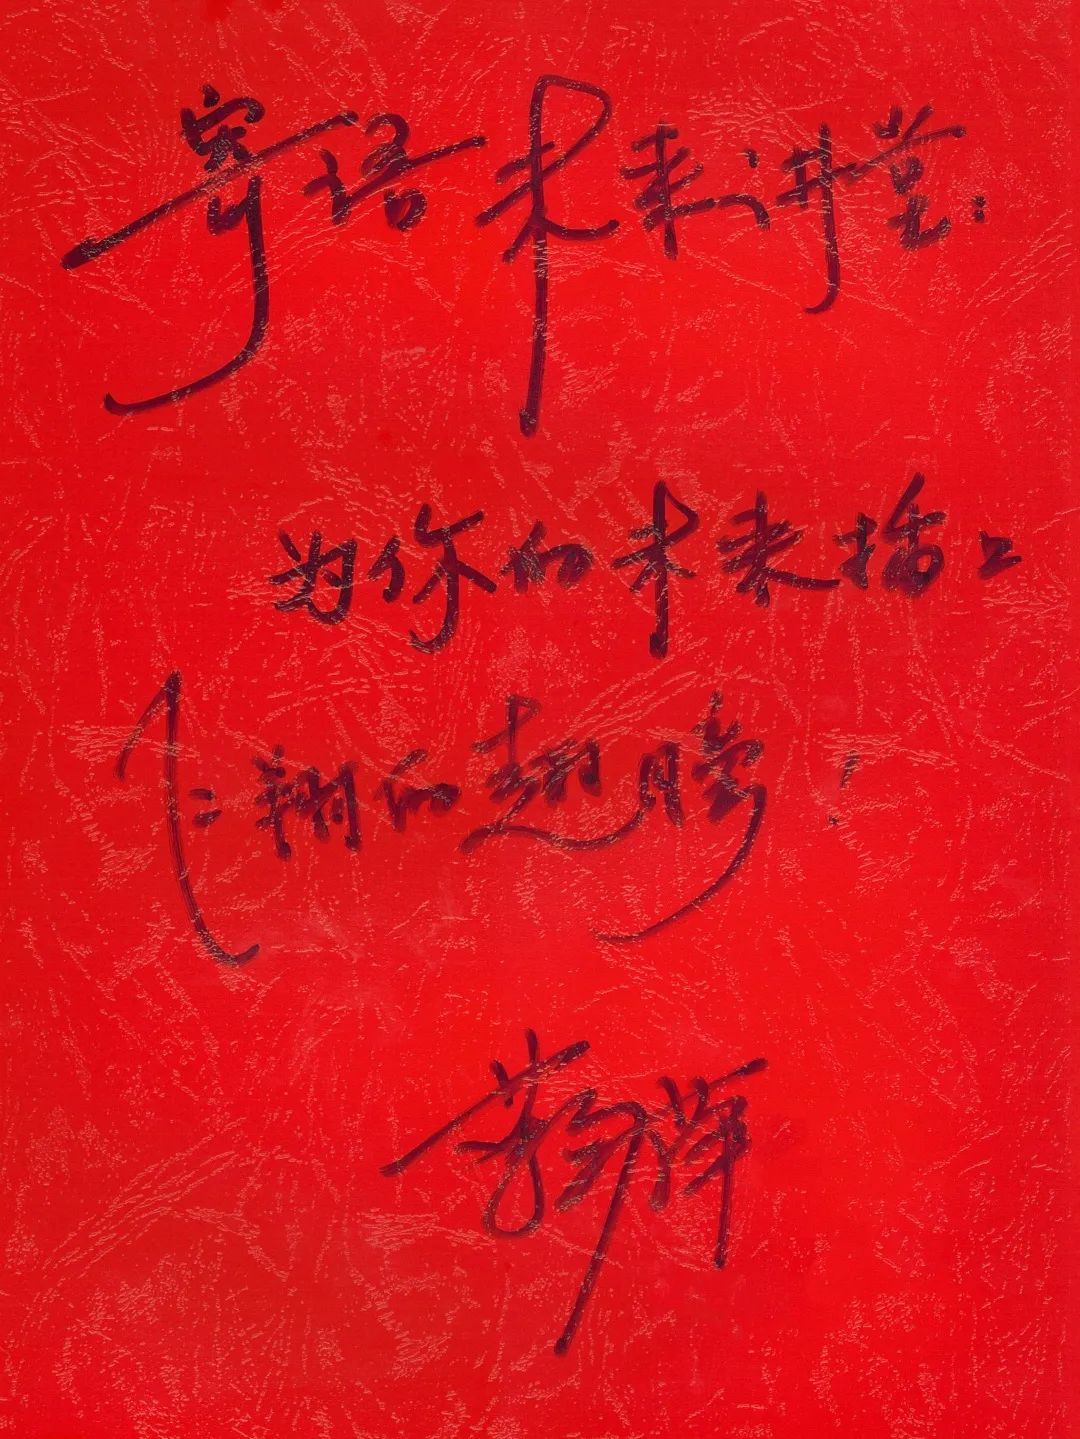 寄语未来讲堂：
为你的未来插上
飞翔的翅膀！